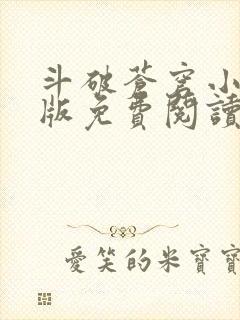 斗破蒼穹小
版免費閱讀
愛笑的米寶寶